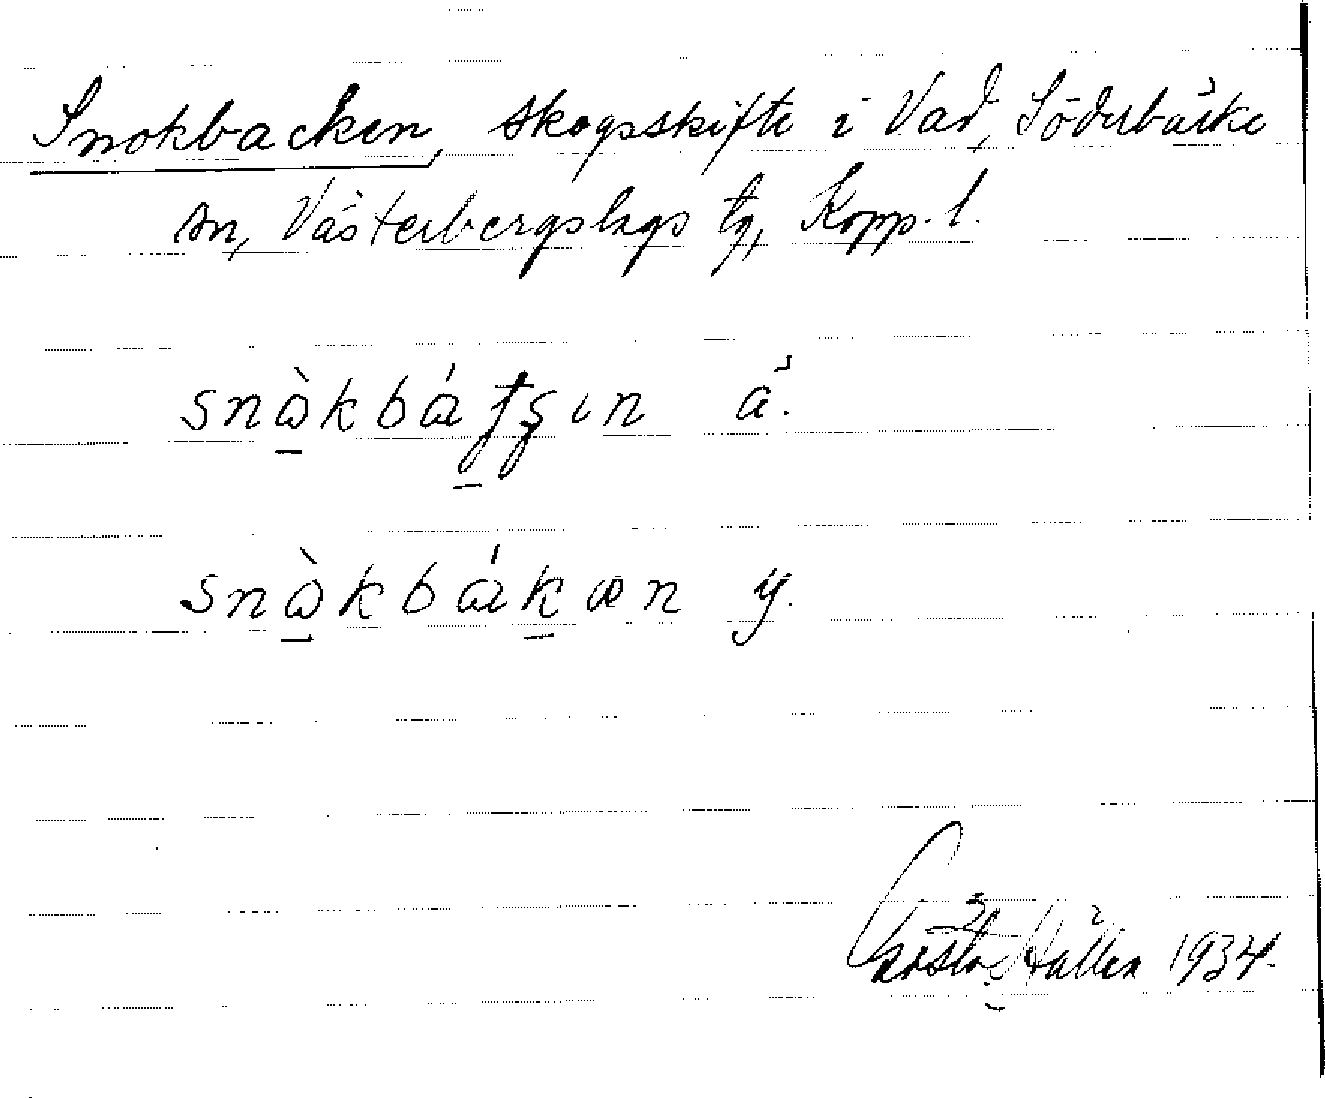 Snokbacken, skogsskifte i Vad, Söderbärke
sn, Västerbergslags tg, Kopp. l.
snὰ̠kbátʂ̠ɩn ä.
snὰ̠kbák̠æn y.
Gösta Hallén 1934.